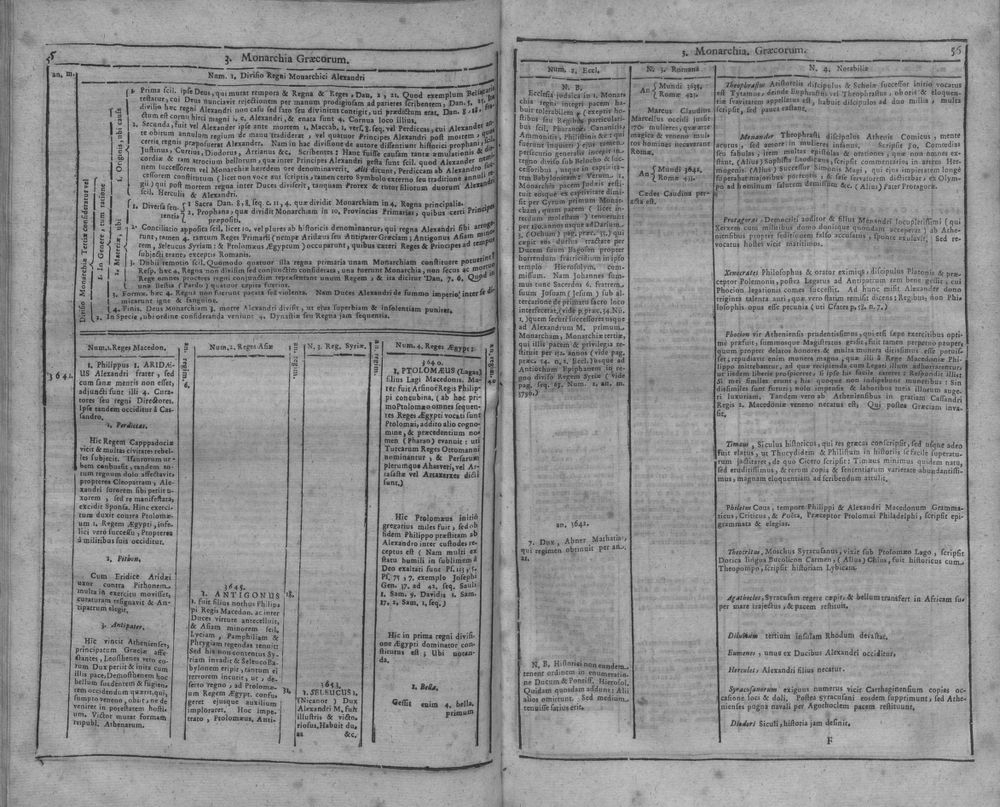 55
3. Monarchia Græcorum.
an. m.
Num. 1, Divisio Regni Monarchici Alexandri
Divisio Monarchiæ Tertiæ consideratur vel
1. In Genere, tum ratione
1. Originis, ubi causa
1. Prima scil. ipse Deus, qui mutat tempora & Regna & Reges, Dan. 2, 21. Quod exemplum
testatur, cui Deus nunciavit rejectionem per manum prodigiosam ad parietes scribentem; Dan. 5, 25,
divisio hæc regni Alexandri non casu sed fato seu divinitus contigit, uti prædictum erat, Dan. 8,
ctum est cornu hirci magni i. e. Alexandri, & enata sunt 4. Cornua loco illius,
2. Secunda, fuit vel Alexander ipse ante mortem 1, Maccab, 1. vers, 7. seq; vel Perdiccas, cui Alexander
te obitum annulum regium de manu tradiderat; vel quatuor Principes Alexandri post mortem
certis regnis præposuerat Alexander. Nam in hac divisione de autore dissentiunt historici prophani,
Justinus, Curtius, Diodorus, Arrianus &c. Scribentes: Hanc fuisse causam tantæ æmulationis &
cordiæ & tam atrocium bellorum, quæ inter Principes Alexandri post funus
nem successorem vel Monarchiæ hæredem ore denominaverit, Alii dicunt, Perdiccam ab Alexandro
in regem constitutum (licet non voce aut scriptis, tamen certo Symbolo externo seu traditione annuli
gii) qui post mortem regna inter Duces diviserit, tanquam Prorex & tutor filiorum duorum Alexandri
scil, Herculis & Alexandri.
2. Materiæ, ubi
1. Diversa sententia
1 Sacra Dan. 8, 8. seq. c. 11, 4. quæ dividit Monarchiam in 4. Regna principalia.
2, Prophana, quæ dividit Monarchiam in 10, Provincias Primarias, quibus certi Principes
præpositi.
2. Conciliatio apposita scil. licet 10, vel plures ab historicis denominantur, qui regna Alexandri sibi
runt, tamen 4. tantum Reges Primarii (nempe Aridæus scil Antipater Græciam; Antigonus Asiam
rem, Seleucus Syriam; & Ptolomæus Ægyptum) occuparunt, quibus cæteri Reges & Principes ad tempus
subjecti erant, exceptis Romanis.
3. Dubii remotio scil. Quomodo quatuor illa regna primaria unam Monarchiam constituere potuerint?
Resp. hæc 4, Regna non divisim sed conjunctim considerata, una fuerunt Monarchia, non secus ac
Reges omnes proceres regni conjunctim repræsentant unum Regem, & ita dicitur Dan. 7, 6. Quod in
una Bestia (Pardo) quatuor capita fuerint.
3. Formæ. hæc 4. Regna non fuerunt pacata sed violenta. Nam Duces Alexandri de summo imperio, inter se di-
micarunt igne & sanguine.
4. Finis, Deus Monarchiam 3. morte Alexandri divisit, ut ejus superbiam & insolentiam puniret.
2. In Specie, ubi ordine consideranda veniunt 4. Dynastiæ seu Regna jam sequentia.
Num. 1. Reges Macedon.
3642
1. Philippus 1. ARIDÆ-
US Alexandri frater, sed
cum sanæ mentis non esset,
adjuncti sunt illi 4. Cura-
tores seu regni Directores.
Ipse tandem occiditur â Cas-
sandro,
1. Perdiccas.
Hic Regem Cappadociæ
vicit & multas civitates rebel-
les subjecit. Isaurorum ur-
bem combussit, tandem to-
tum regnum dolo affectavit,
propterea Cleopatram, Ale-
xandri sororem sibi petiit u-
xorem, sed re manifestata,
excidit Sponsa. Hinc exerci-
tum duxit contra Ptolomæ-
um 1, Regem Ægypti, infe-
lici vero successu, Propterea
à militibus suis occiditur.
2. Python.
Cum Eridice Aridæi
uxor contra Pithonem
multa in exercitu movisset,
curaturam resignavit & An-
tipatrum elegit.
3. Antipater,
Hic vincit Athenienses,
principatum Græciæ affe-
ctantes, Leosthenes vero eo-
rum Dux periit & inita cum
illis pace, Demosthenem hoc
bellum suadentem & fugien-
tem occidendum quærit, qui,
sumpto veneno, obiit; ne de-
veniret in potestatem hostili-
um. Victor mutat formam
reipubl. Athenarum.
an. regim.
Num, 2, Reges Asiæ
3645.
1. ANTIGONUS
1. fuit filius nothus Philip-
pi Regis Macedon. ac inter
Duces virtute antecelluit,
& Asiam minorem scil.
Lyciam, Pamphiliam &
Phrygiam regendas tenuit:
Sed his non contentus Sy-
riam invadit & Seleuco Ba-
bylonem eripit, tantum ei
terrorem incutit, ut, de-
serto regno, ad Ptolomæ-
um Regem Ægypt. confu-
geret ejusque auxilium
imploraret. Hoc impe-
trato, Ptolomæus, Anti-
an. regim.
18.
N, 3. Reg. Syriæ,
1643.
1. SELEUCUS 1,
(Nicanor) Dux
Alexandri M. fuit
illustris & victo-
riosus, Habuit du-
as &c,
32,
an. regim.
Num. 4. Reges Ægypti
3640.
1. PTOLOMÆUS (Lagus)
filius Lagi Macedonis. Ma-
ter fuit Arsinoe Regis Philip-
pi concubina, (ab hoc pri-
mo Ptolomæo omnes sequen-
tes Reges Ægypti vocati sunt
Ptolomai, addito alio cogno-
mine, & præcedentium no-
men (Pharao) evanuit: uti
Turcarum Reges Ottomanni
nominantur, & Persarum
plerumque Ahasveri, vel Ar-
tasastæ vel Artaxerxes dicti
sunt.)
Hic Ptolomæus initio
gregarius miles fuit, sed ob
fidem Philippo præstitam ab
Alexandro inter custodes re-
ceptus est (Nam multi ex
statu humili in sublimem â
Deo exaltati sunt Ps. 113, 5.
Ps. 75, 7. exemplo Josephi
Gen. 37. ad 42, seq. Sauli
1 Sam. 9. Davidis 1. Sam.
17. 2, Sam, 1, seq.)
Hic in prima regni divisi-
one Ægypti dominator con-
stitutus est; Ubi notan-
da.
1. Bella.
Gessit enim 4. bella,
primum
an. regim.
40.
3. Monarchia. Græcorum.
56
Num. 2, Eccl,
N. B.
Ecclesia judaica in 1. Monar-
chiæ regni integri pacem ha-
buit tolerabilem, (exeptis ho-
stibus seu Regibus particulari-
bus scil, Pharaone, Cananitis,
Ammonitis, Philistinis &c, qui
fuerunt inquieti) ejus tamen
perpessio accepit incrementum, in
regno diviso sub Belocho & suc-
cessoribus, usque in captivita-
tem Babylonicam: Verum 2.
Monarchiæ pacem Judæis resti-
tuit usque ex captivitate dimi-
sit per Cyrum primum Monar-
cham, quam pacem (licet in-
terdum molestam) tenuerunt
per 130. annos usque ad Darium,
2. (Ochum) pag. præc. 53.) qui
cepit eos durius tractare per
Ducem suum Bagosen propter
horrendum fratricidium in ipso
templo Hierosolym, com-
missum. Nam Johannes sum-
mus tunc Sacerdos 6. fratrem
suum Josuam (Jesum) sub al-
tercatione de primatu sacro loco
interfecerat, (vide p, præc. 54. Nu.
2,) quem secuti successores usque
ad Alexandrum M. primum
Monarcham, Monarchiæ tertiæ,
qui illis pacem & privilegia re-
stituit per 12. annos (vide pag,
præc. 54. n, 2. Eccl.) usque ad
Antiochum Epiphanem in re-
gno diviso Regem Syriæ (vide
pag, seq. 63. Num. 2. an. m.
3790.)
an. 3642.
7. Dux, Abner Mathatiæ,
qui regimen obtinuit per an.
21.
N, B, Historici non eundem
tenent ordinem in enumeratio-
ne Ducum & Pontific. Hierosol.
Quidam quosdam addunt; Alii
alios omittunt. Sed medium
tenuisse satius erit.
N, 3. Romana
An { Mundi 3635,
Romæ 421,
Marcus Claudius
Marcellus occidi jussit
170. mulieres, quæ arte
magica & veneno mul-
tos homines necaverant
Romæ.
An { Mundi 3642.
Romæ 428,
Cædes Claudius per-
acta est.
N. 4. Notabilia
Theophrastus Aristotelis discipulus & Scholæ successor initio vocatus
est Tytamus, deinde Euphrastus vel Theophrastus, ob oris & eloquen-
tiæ suavitatem appellatus est, habuit discipulos ad duo millia, multa
scripsit, sed pauca exstant,
Menander Theophrasti discipulus Athenis Comicus, mente
acutus, sed æstror in mulieres insanus. Scripsit 80, Comœdias
seu fabulas, item multas epistolas & orationes, quæ non omnes ex-
stant, (Alius) Sophista Laodicenus, scripsit commentarios in artem Her-
mogenis. (Alius) Successor Simonis Magi, qui ejus impietatem longè
superabat majoribus portentis, & se ipse salvatorem dictitabat, ex Olym-
po ad hominum salutem demissum &c. (Alius) Pater Protagoræ.
Protagoras, Democriti auditor & filius Menandri locupletissimi (qui
Xerxem cum militibus domo donisque quondam acceperat) ab Athe-
niensibus propter seditionem falso accusatus, sponte exulavit. Sed re-
vocatus hostes vicit maritimos.
Xenocrates Philosophus & orator eximius, discipulus Platonis & præ-
ceptor Polemonis, postea Legatus ad Antipatrum rem bene gessit, cui
Phocion legationis comes successit, Ad hunc misit Alexander dona
triginta talenta auri, quæ vero statim remisit dicens; Regibus, non Phi-
losophis opus esse pecunia (uti Crates p, 18. n. 7.)
Phocion vir Atheniensis prudentissimus, qui etsi sæpe exercitibus opti-
mè præfuit, summosque Magistratus gessit, fuit tamen perpetuo pauper,
quum propter delatos honores & multa munera ditissimus esse potuis-
set, repudiavit enim munera magna, quæ illi â Rege Macedoniæ Phi-
lippo mittebantur, ad quæ recipienda cum Legati illum adhortarentur,
ut iisdem liberis prospiceret, si ipse his facile careret: Respondit illis:
Si mei similes erunt, his quoque non indigebunt muneribus: Sin
dissimiles sunt futuri; nolo impensis & laboribus meis illorum auge-
ri luxuriam. Tandem vero ab Atheniensibus in gratiam Cassandri
Regis 2. Macedoniæ veneno necatus est, Qui postea Græciam inva-
sit.
Timæus, Siculus historicus, qui res græcas conscripsit, sed usque adeo
fuit elatus, ut Thucydidem & Philistum in historiis se facile superatu-
rum jactitaret, de quo Cicero scripsit: Timæus minimus quidem natu,
sed eruditissimus, & rerum copia & sententiarum varietate abundantissi-
mus, magnam eloquentiam ad scribendum attulit,
Philetas Cous, tempore Philippi & Alexandri Macedonum Gramma-
ticus, Criticus, & Poëta, Præceptor Ptolomæi Philadelphi, scripsit epi-
grammata & elegias.
Theocritus, Moschus Syracusanus, vixit sub Ptolomæo Lago, scripsit
Dorica lingua Bucolicon Carmen, (Alius) Chius, fuit historicus cum
Theopompo, scripsit historiam Lybicam.
Agathocles, Syracusam regere cœpit, & bellum transfert in Africam su-
per mare trajectus, & pacem restituit.
Diluvium tertium insulam Rhodum devastat.
Eumenes, unus ex Ducibus Alexandri occiditur,
Hercules, Alexandri filius necatur.
Syracusanorum exiguus numerus vicit Carthaginensium copias oc-
casione loci & doli, Postea Syracusani eosdem supprimunt, sed Athe-
nienses pugna navali per Agothoclem pacem restituunt,
Diodori Siculi, historia jam desinit,
F